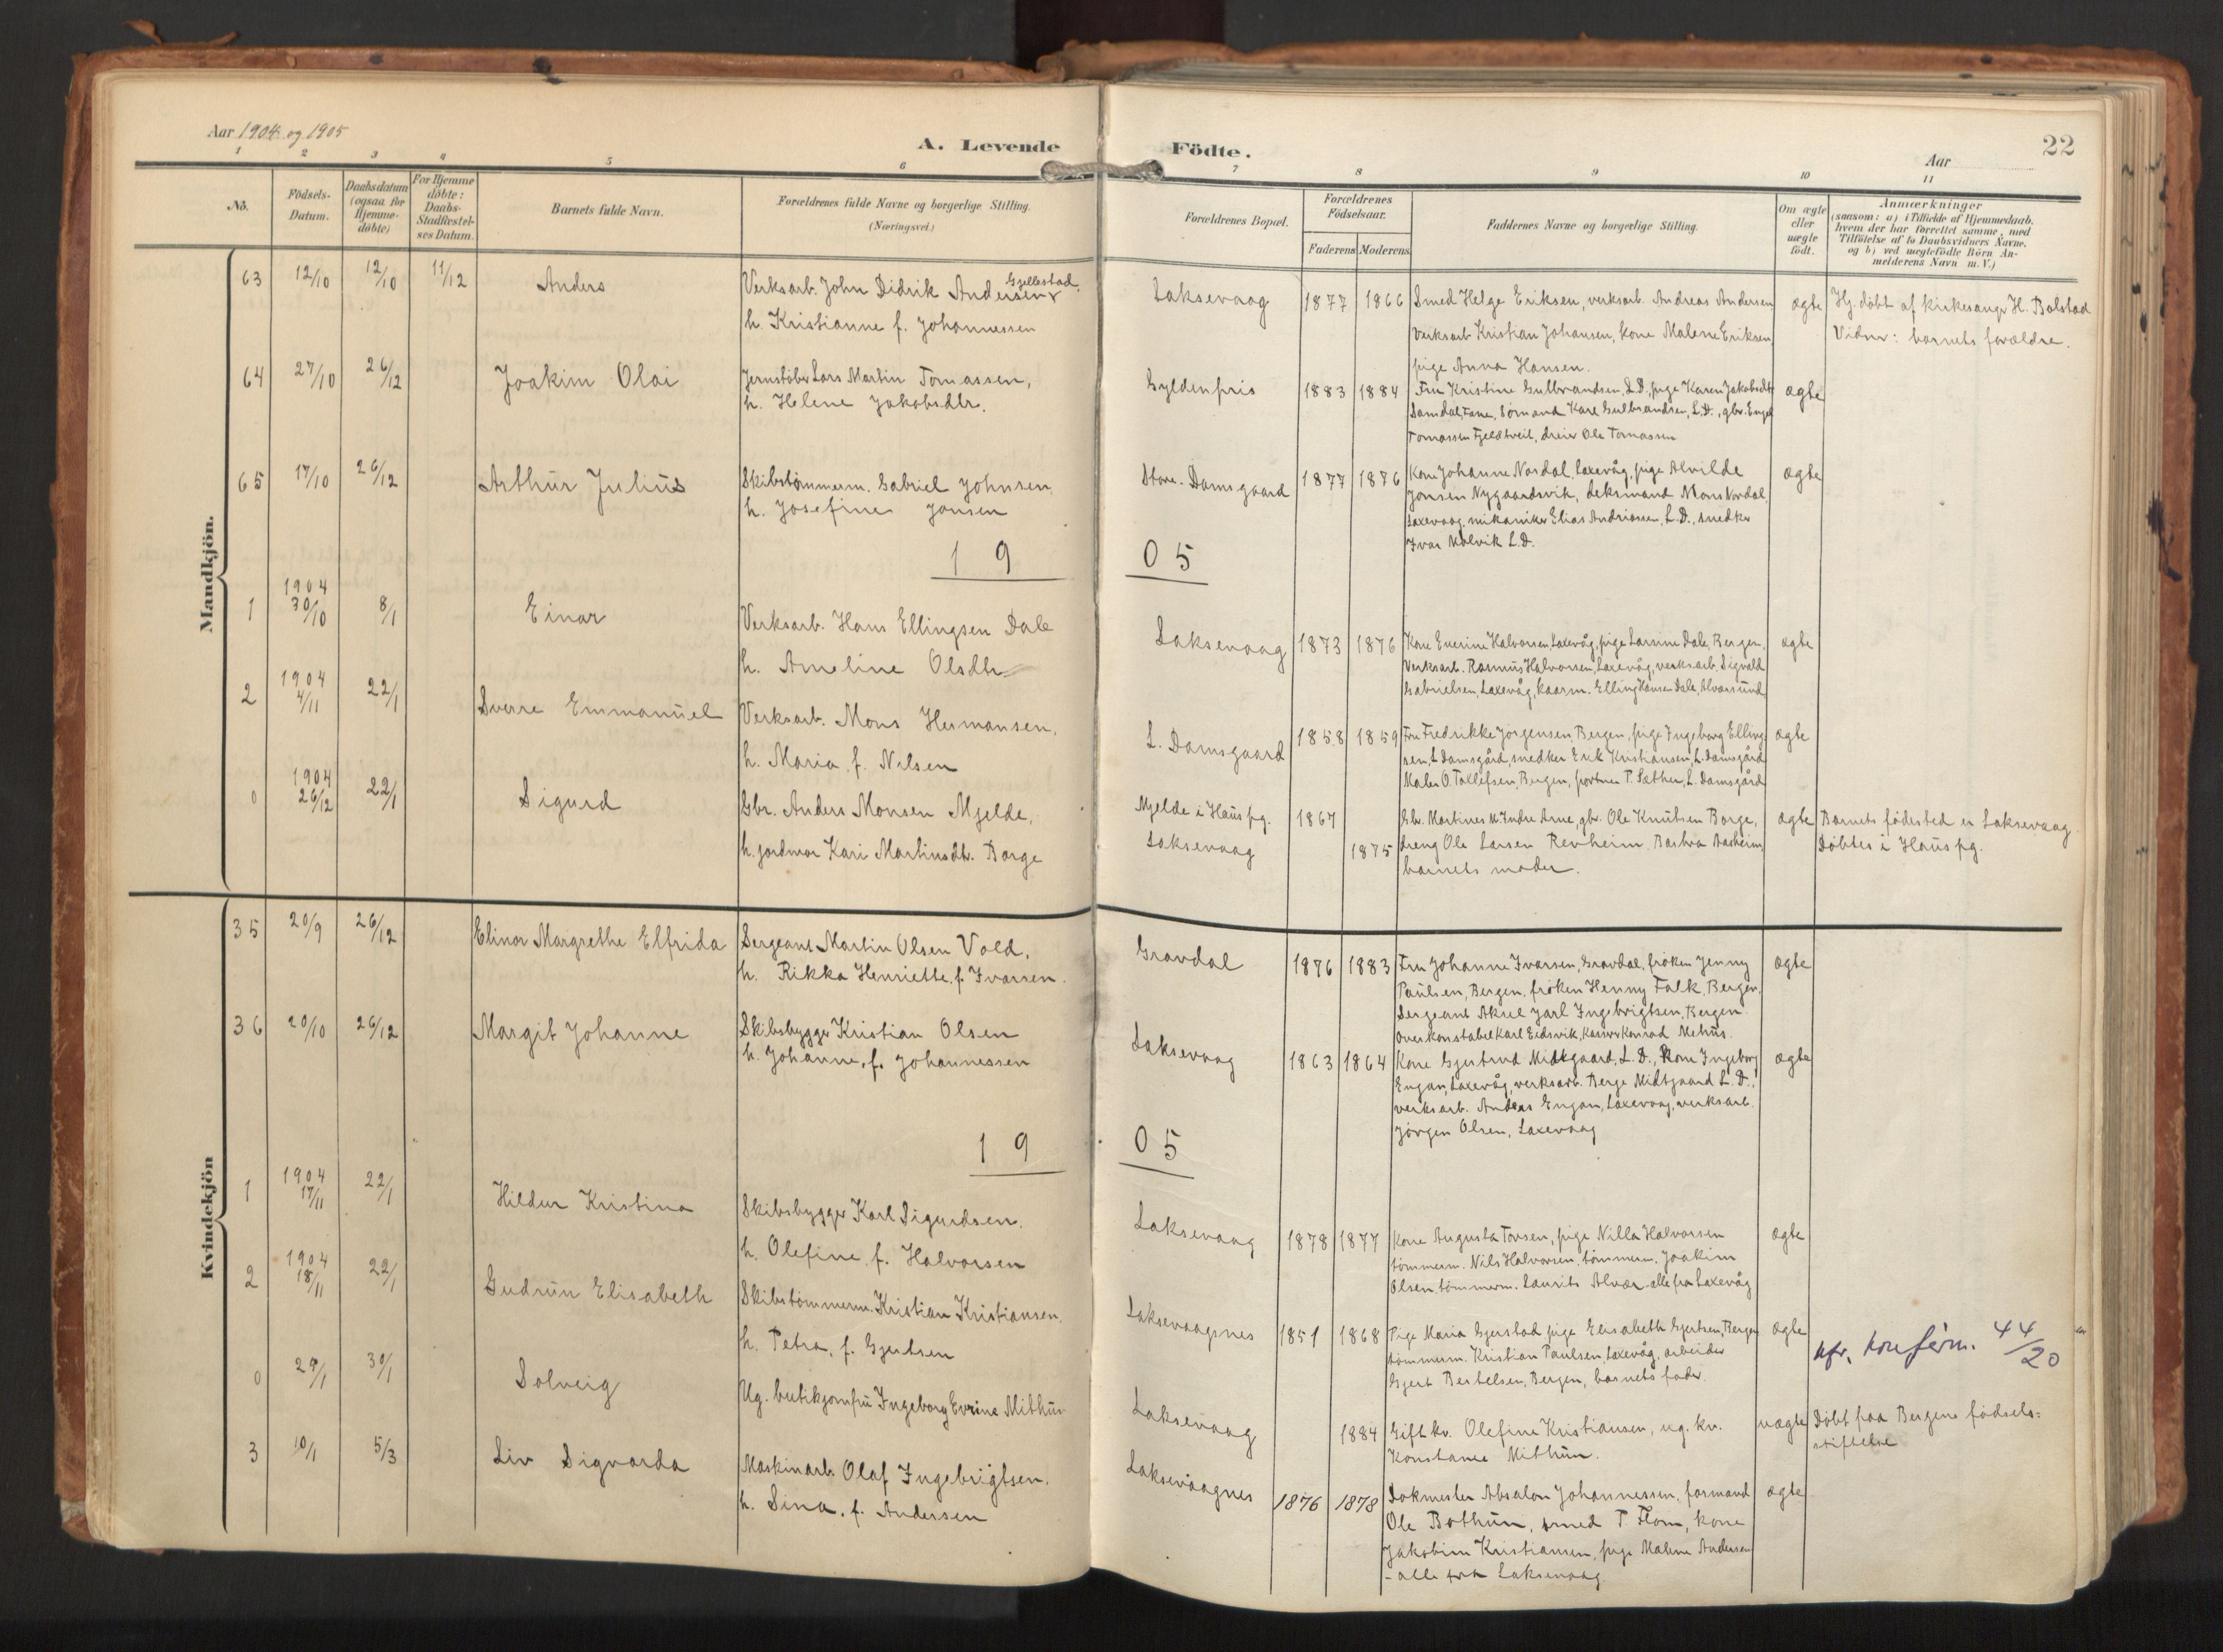 Aar 1904 og 1905
A. Levende
Födte.
Aar
22
1 2 3 4 5 6 7 8 9 10 11
No.
Födsels-Datum.
Daabsdatum (ogsaa for Hjemme-döbte)
For Hjemme döbte: Daabs-Stadfæstel-ses Datum.
Barnets fulde Navn.
Forældrenes fulde Navne og borgerlige Stilling. (Næringsvei.)
Forældrenes Bopæl.
Forældrenes Födselsaar.
Faderens Moderens
Faddernes Navne og borgerlige Stilling.
Om ægte eller uægte födt.
Anmærkninger
(saasom: a) i Tilfælde af Hjemmedaab,
hvem der har forrettet samme, med
Tilföielse af to Daabsvidners Navne,
og b) ved uægtefödte Börn An-
melderens Navn m. V.)
Mandkjön.
63 12/10 12/10 11/12 Anders
Verksarb. John Didrik Andersen Gjellestad,
h. Kristianne f. Johannessen
Laksevaag 1877 1866
Smed Helge Eriksen, verksarb. Andreas Andersen
Verksarb Kristian Johansen, kone Malene Eriksen,
pige Anna Hansen.
ægte
Hj. döbt af kirkesanger H. Bolstad
Vidner: barnets forældre.
64 27/10 26/12 Joakim Olai
Jernstöber Lars Martin Tomassen,
h. Helene Jakobsdtr.
Gyldenpris 1883 1884
Fru Kristine Gulbrandsen, L.D., pige Karen Jakobsdtr
Damdal, Fane, Sömand Karl Gulbrandsen, L.D., gbr. Engel
Tomassen Fjeldtveit, dreier Ole Tomassen
ægte
65 17/10 26/12 Arthur Julius
Skibstömmerm. Gabriel Johnsen,
h. Josefine Jonsen
Store-Damsgaard 1877 1876
Kone Johanne Nordal, Laxevåg, pige Alvilde
Jonsen Nygaardsvik, deksmand Mons Nordal,
Laxevaag, mikaniker Elias Andriassen, L.D., snedker
Ivar Kalvik L.D.
ægte
1 9 0 5
1 1904 30/10 8/1 Einar
Verksarb. Hans Ellingsen Dale
h. Ameline Olsdtr.
Laksevaag 1873 1876
Kone Everine Halvorsen, Laxevåg, pige Larsine Dale, Bergen,
Verksarb. Rasmus Halvorsen, Laxevåg, verksarb. Sigvald
Gabrielsen, Laxevåg, kaarm. Elling Hansen Dale, Alversund
ægte
2 1904 4/11 22/1 Sverre Emmanuel
Verksarb. Mons Hermansen,
h. Maria, f. Nilsen
L. Damsgaard 1858 1859
Fru Fredrikke Jörgensen, Bergen, pige Ingeborg Elling-
sen, L Damsgård, snedker Erik Kristiansen, L. Damsgård
Maler O. Tollefsen, Bergen, portner P. Sæther, L. Damsgård
ægte
0 1904 26/12 22/1 Sigurd
Gbr. Anders Monsen Mjelde,
h. jordmor Kari Martinsdtr. Borge
Mjelde i Haus pg. 1867
Laksevaag 1875
Gbr. Martines M. Indre Arne, gbr. Ole Knutsen Borge,
dreng Ole Larsen Revheim, Barbra Aasheim,
barnets moder.
ægte
Barnets födested er Laksevaag.
Döbtes i Haus pg.
Kvindekjön
35 20/9 26/12 Elinor Margrethe Elfrida
Sergeant Martin Olsen Vold,
h. Rikka Henriette, f. Ivarsen.
Gravdal 1876 1883
Fru Johanne Ivarsen, Gravdal, fröken Jenny
Paulsen, Bergen, fröken Henny Falk, Bergen,
Sergeant Aksel Jarl Ingebrigtsen, Bergen
Overkonstabel Karl Eidsvik, Konrad Mehus.
ægte
36 20/10 26/12 Margit Johanne
Skibsbygger Kristian Olsen
h. Johanne, f. Johannessen
Laksevaag 1863 1864
Kone Gjertrud Midtgaard, L.D., kone Ingeborg
Engan, Laxevåg, verksarb. Berge Midtgaard L.D.,
verksarb. Andeas Engan, Laxevaag, verksarb.
Jörgen Olsen, Laxevaag
ægte
1 9 0 5
1 1904 17/11 22/1 Hildur Kristina
Skibsbygger Karl Sigurdsen.
h. Olefine f. Halvorsen
Laksevaag 1878 1877
Kone Augusta Torsen, pige Nilla Halvorsen
tömmerm. Nils Halvorsen, tömmerm. Joakim
Olsen, tömmerm. Laurits Alvær - alle fra Laxevåg
ægte
2 1904 18/11 22/1 Gudrun Elisabeth
Skibstömmerm. Kristian Kristiansen,
h. Petra, f. Gjertsen
Laksevaagsnes 1851 1868
Pige Maria Gjerstad pige Elisabeth Gjertsen, Bergen
tömmerm. Kristian Paulsen, Laxevåg, arbeider
Gjert Bertelsen, Bergen, barnets fader.
ægte
konferm. 44/20
0 29/1 30/1 Solveig
Ug. butikjomfru Ingeborg Evrine Mithun
Laksevaag 1884
Gift kv. Olefine Kristiansen, ug. kv.
Konstance Mithun.
uægte
Döbt paa Bergens födsels=
stiftelse
3 10/1 5/3 Liv Sigvarda
Maskinarb. Olaf Ingebrigtsen,
h. Sina, f. Andersen
Laksevaagnes 1876 1878
Dokmester Absalon Johannessen, formand
Ole Bothun, smed P. Flom, kone
Jakobine Kristiansen, pige Malene Andersen
- alle fra Laksevaag.
ægte